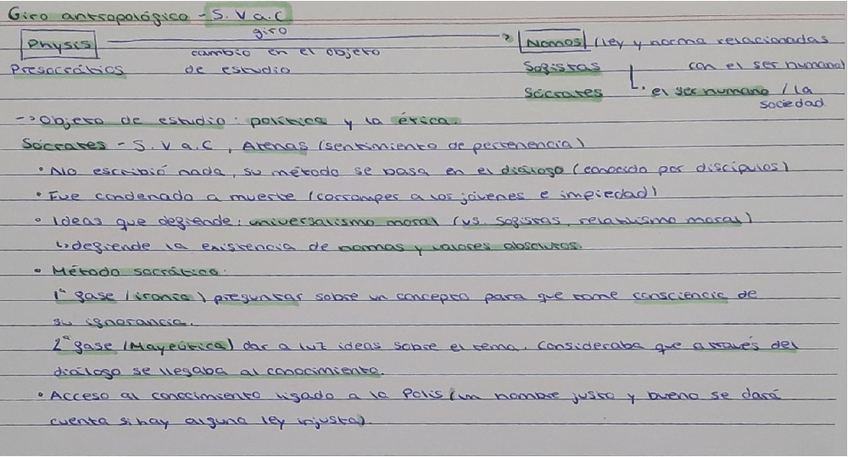 Giro antropológico - S. V a.C
Physis giro Nomos (ley y norma relacionadas
Presocráticos cambio en el objeto Sofistas con el ser humano)
de estudio Sócrates · el ser humano / la
sociedad
-> Objeto de estudio: política y la ética.
Sócrates - S. V a.C, Atenas (sentimiento de pertenencia)
· No escribió nada, su método se basa en el diálogo (conocido por discípulos)
· Fue condenado a muerte (corromper a los jóvenes e impiedad)
· Ideas que defiende: universalismo moral (vs. sofistas, relativismo moral)
↳ defiende la existencia de normas y valores absolutos.
· Método socrático:
1ª fase (ironía) preguntar sobre un concepto para que tome consciencia de
su ignorancia.
2ª fase (Mayéutica) dar a luz ideas sobre el tema. Consideraba que a través del
diálogo se llegaba al conocimiento.
· Acceso al conocimiento ligado a la Polis (un hombre justo y bueno se dará
cuenta si hay alguna ley injusta).